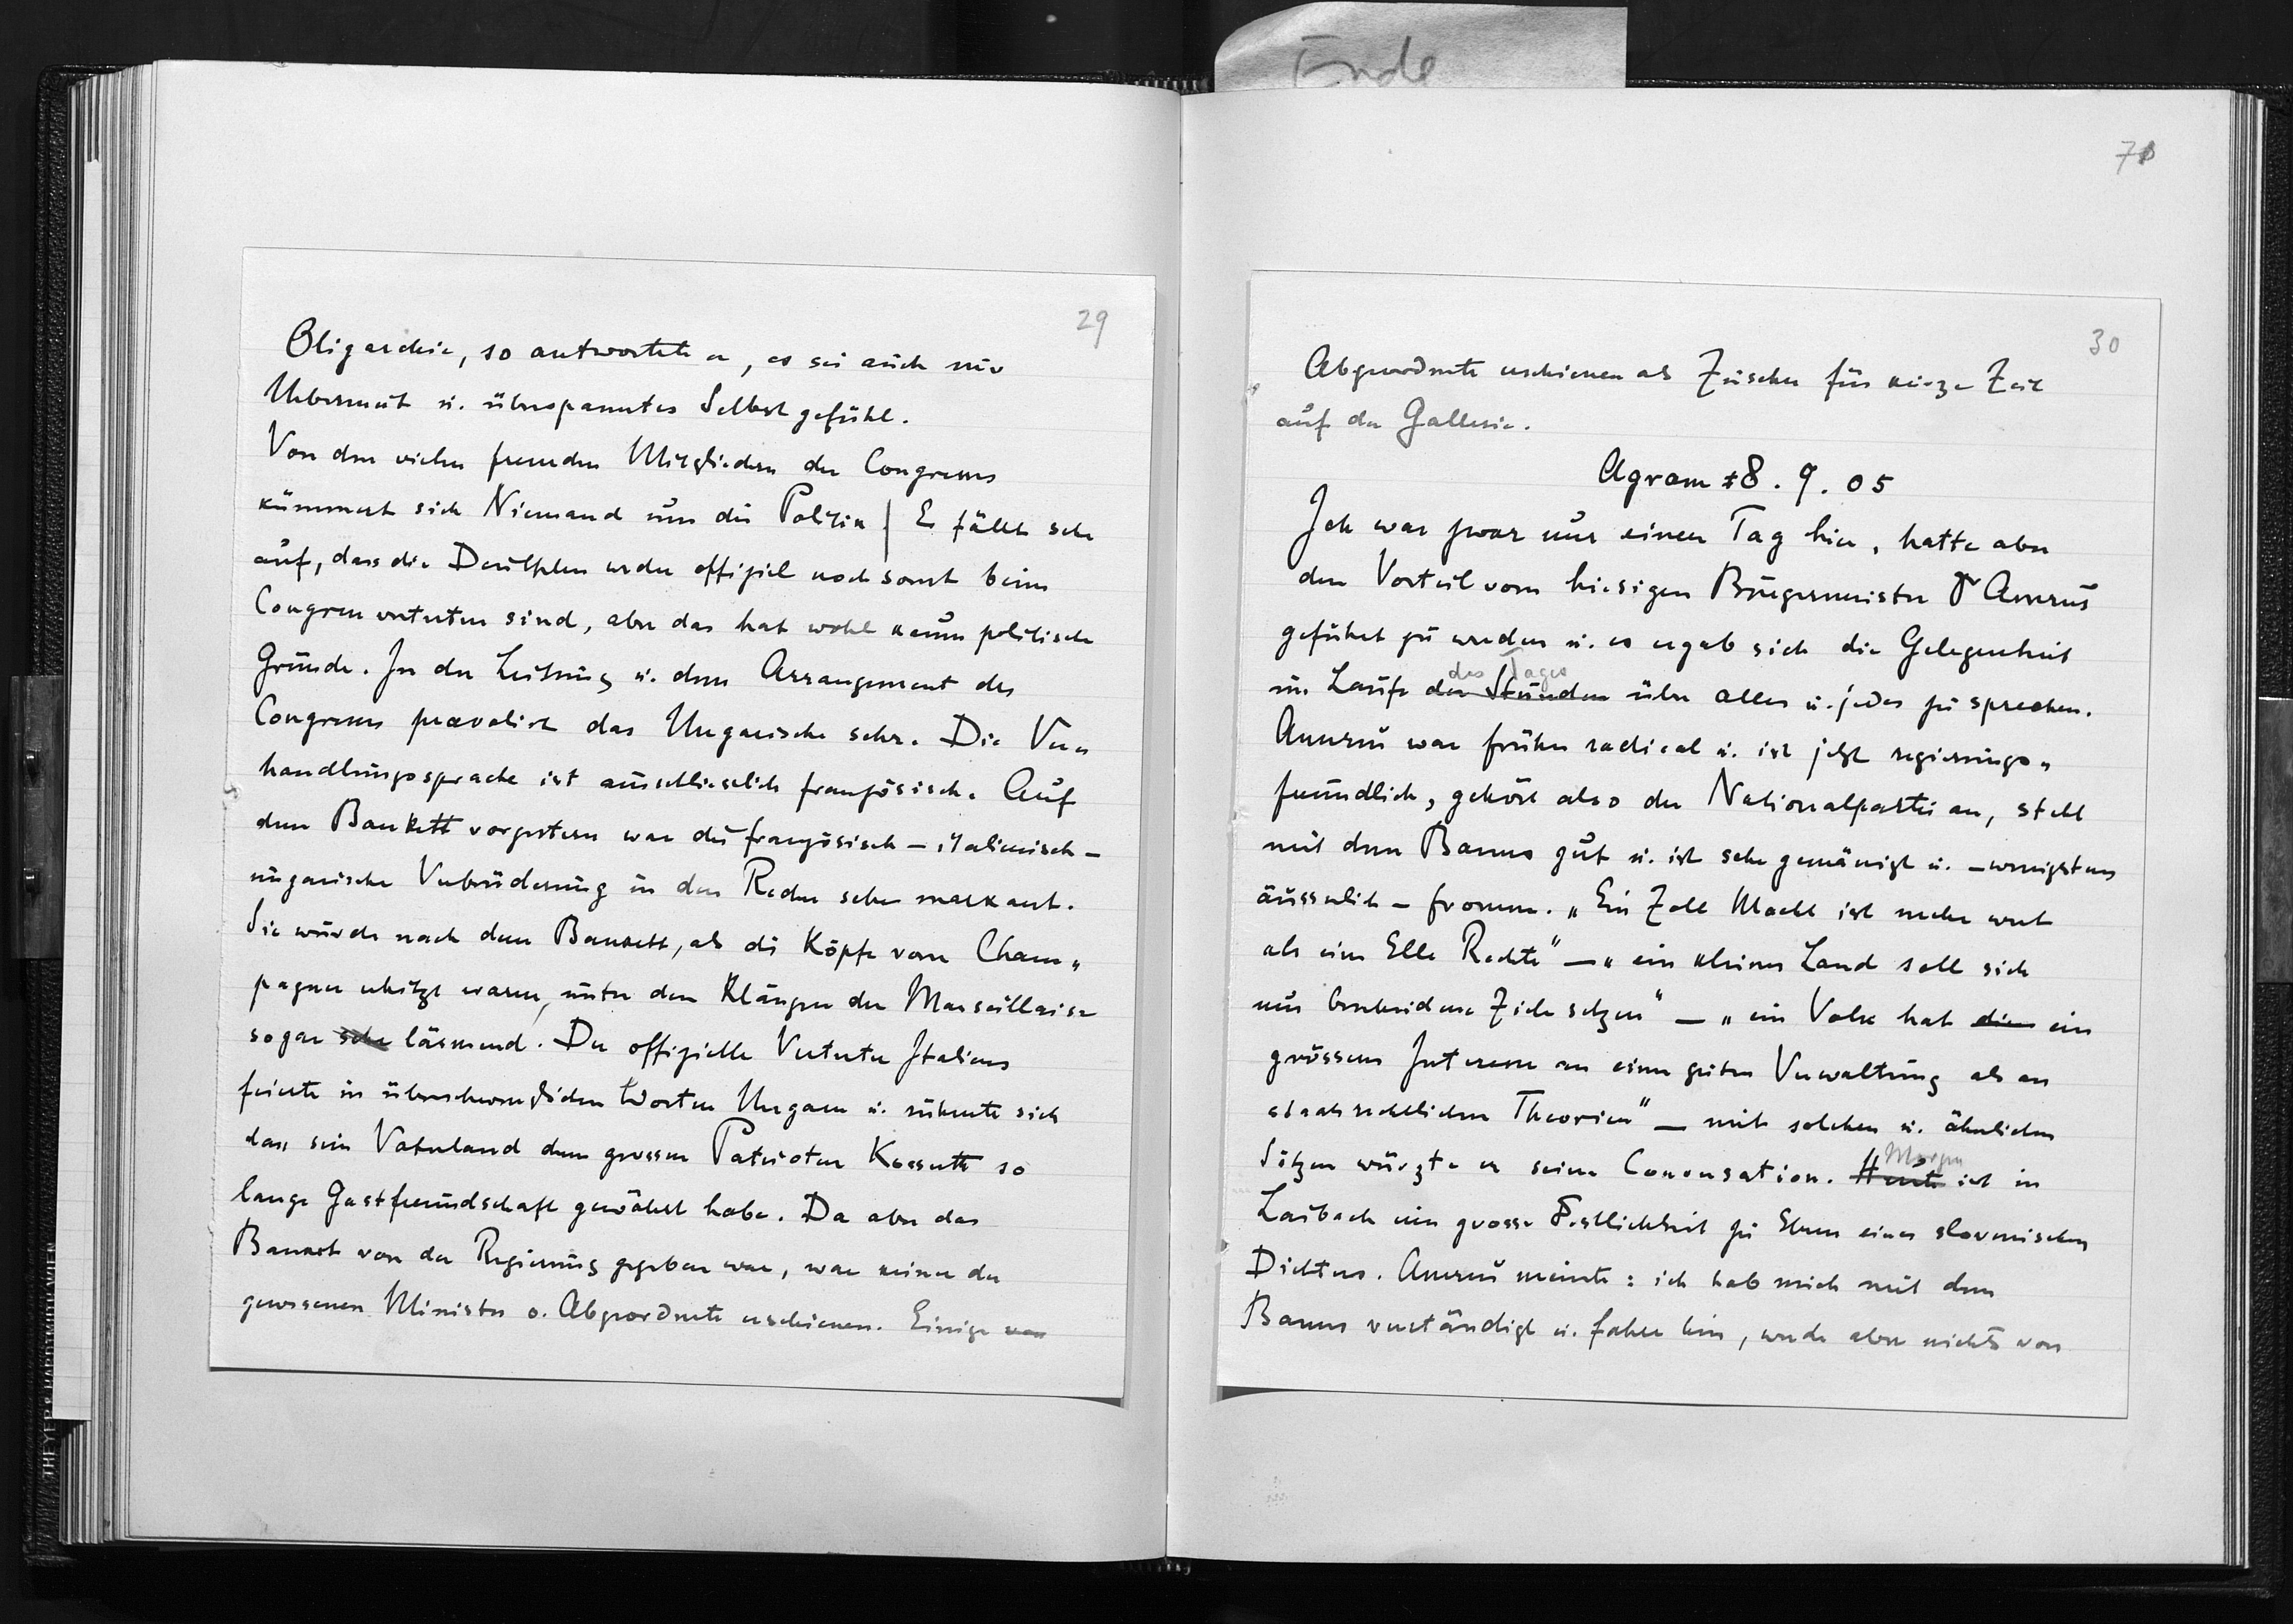 Ende
29
Oligarchie, so antwortete er, es sei auch nur
Uebermut u. überspanntes Selbstgefühl.
Von den vielen fremden Mitgliedern des Congresses
kümmert sich Niemand um die Politik | Es fällt sehr
auf, dass die Deutschen weder offiziel noch sonst beim
Congress vertreten sind, aber das hat wohl kaum politische
Gründe. In der Leitung u. dem Arrangement des
Congresses praevalirt das Ungarische sehr. Die Ver„
handlungssprache ist ausschliesslich französisch. Auf
dem Bankett vorgestern war die französisch – italienisch –
ungarische Verbrüderung in den Reden sehr markant.
Sie wurde nach dem Bankett, als die Köpfe vom Cham„
pagner erhitzt waren, unter den Klängen der Marseillaise
sogar sehr lärmend. Der offizielle Vertreter Italiens
feierte in überschwenglichen Worten Ungarn u. rühmte sich
dass sein Vaterland dem grossen Patrioten Kossuth so
lange Gastfreundschaft gewährt habe. Da aber das
Bankett von der Regierung gegeben war, war keiner der
gewesenen Minister o. Abgeordnete erschienen. Einige von
78
30
Abgeordnete erschienen als Zuseher für kurze Zeit
auf der Gallerie.
Agram 18. 9. 05
Ich war zwar nur einen Tag hier, hatte aber
den Vorteil vom hiesigen Bürgermeister Dr Amrus
geführt zu werden u. es ergab sich die Gelegenheit
des Tages
im Laufe der Stunden über alles u. jedes zu sprechen.
Amrus war früher radical u. ist jetzt regierungs„
freundlich, gehört also der Nationalpartei an, steht
mit dem Banus gut u. ist sehr gemässigt u. – wenigstens
äusserlich – fromm. „Ein Zoll Macht ist mehr wert
als eine Elle Rechte“ – „ein kleines Land soll sich
nur bescheidene Ziele setzen“ – „ein Volk hat ein
grösseres Interesse an einer guten Verwaltung als an
staatsrechtlichen Theorien“ – mit solchen u. ähnlichen
Sätzen würzte er seine Conversation. Heute ist in
Morgen
Laibach eine grosse Festlichkeit zu Ehren eines slovenischen
Dichters. Amrus meinte: ich hab mich mit dem
Banus verständigt u. fahre hin, werde aber nichts von
THEYER & HARDTMUTH WIEN